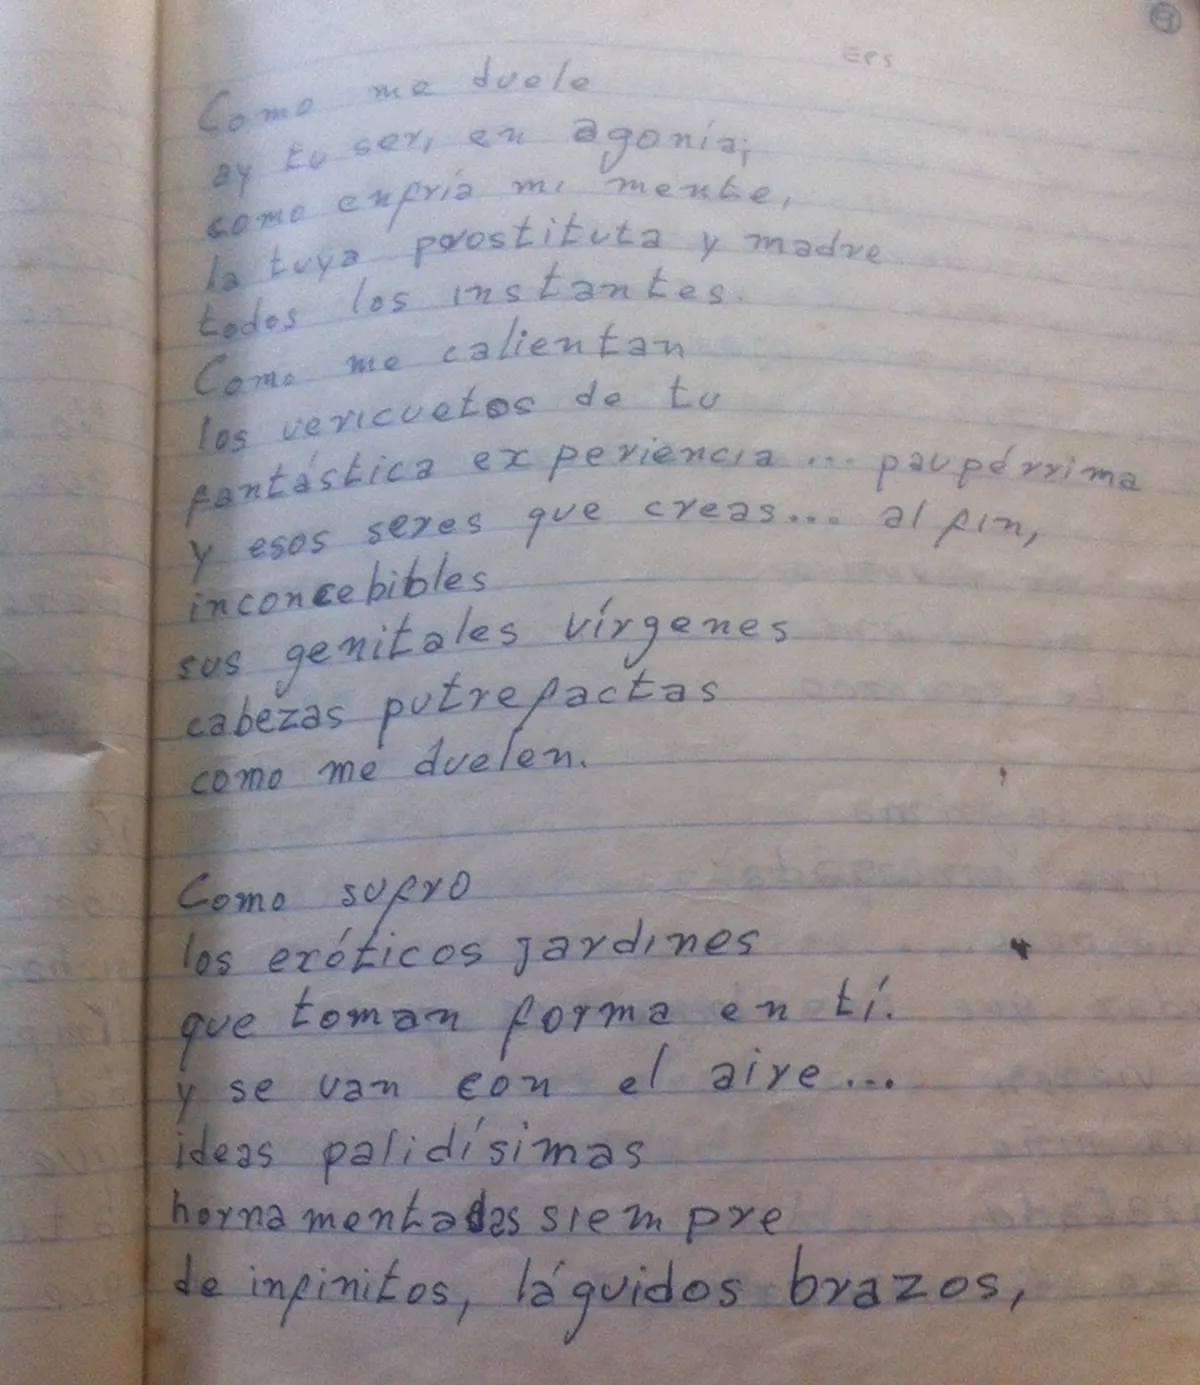 EPS
Como me duele
ay tu ser, en agonía;
como enfría mi mente,
la tuya prostituta y madre
todos los instantes.
Como me calientan
los vericuetos de tu
fantástica experiencia ... paupérrima
y esos seres que creas... al fin,
inconcebibles
sus genitales vírgenes
cabezas putrefactas
como me duelen.
Como sufro
los exóticos jardines
que toman forma en tí.
y se van con el aire...
ideas palidísimas
hornamentadas siempre
de infinitos, láguidos brazos,